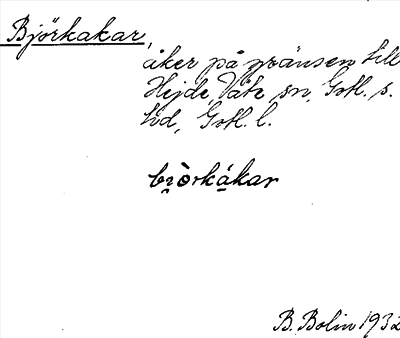 Björkakar,
åker på gränsen till
Hejde, Väte sn, Gotl. s.
hd, Gotl. l.
bi̯ò̤rkákar
B. Bolin 1932